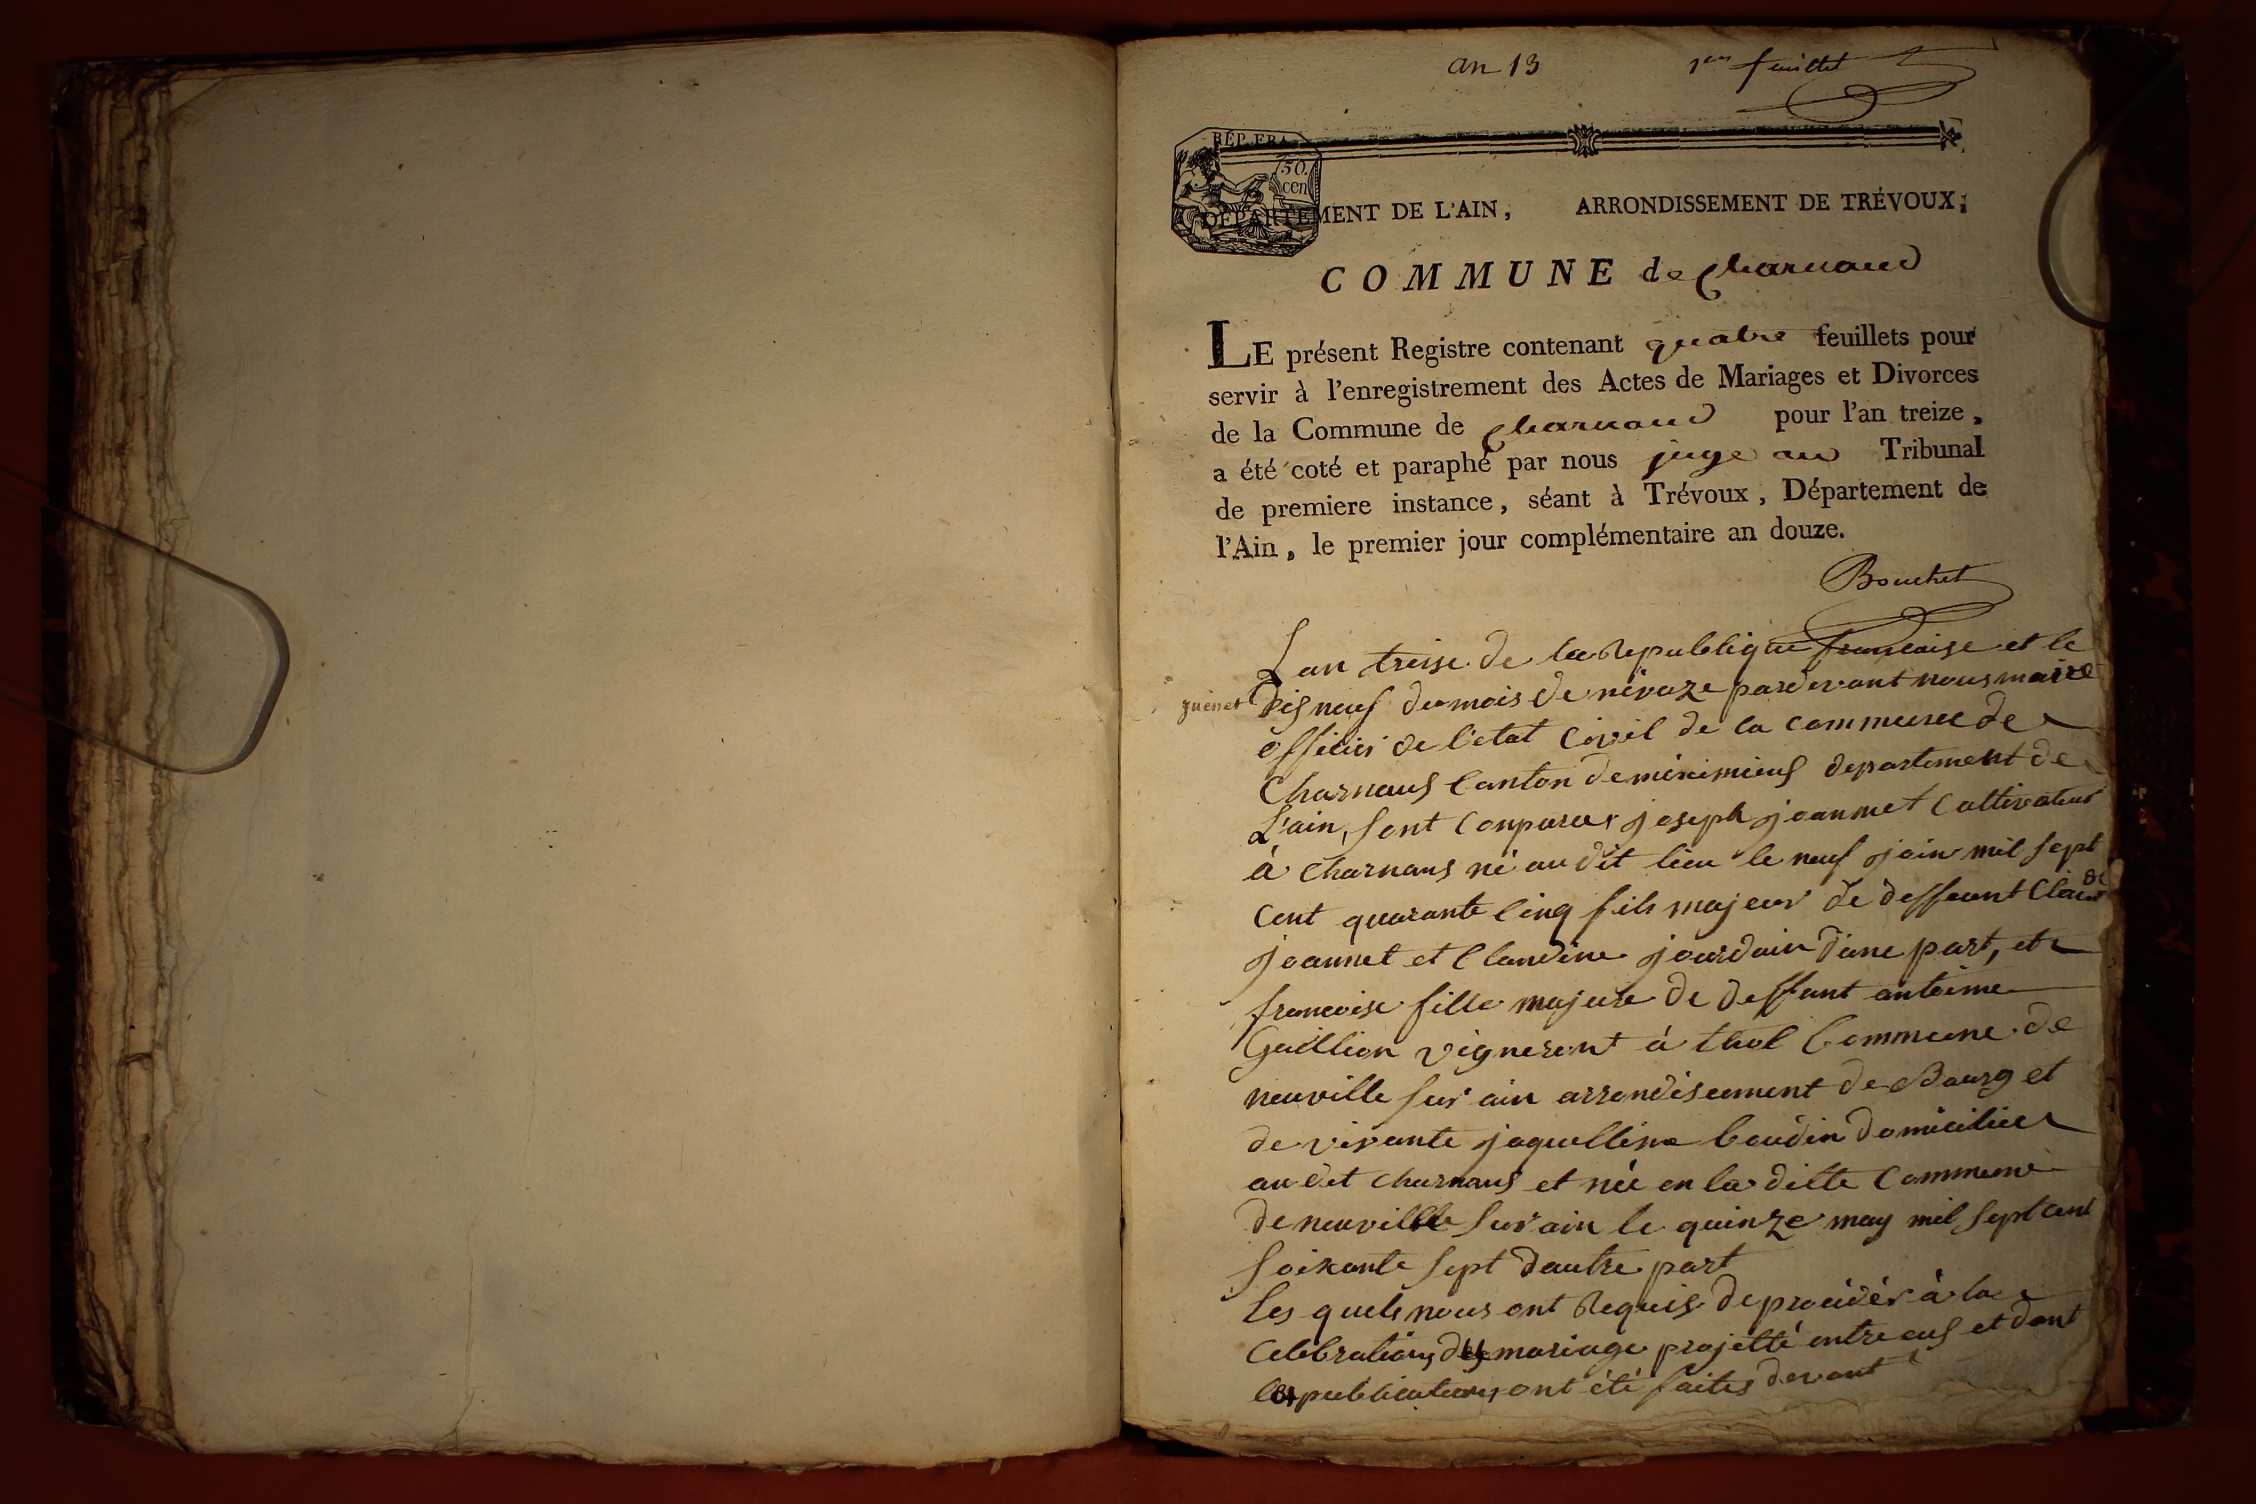 an 13 1er feuillet
RÉP. FRA.
50.
cen
DÉPARTEMENT DE L'AIN, ARRONDISSEMENT DE TRÉVOUX;
COMMUNE de Charnaud
LE présent Registre contenant quatre feuillets pour
servir à l'enregistrement des Actes de Mariages et Divorces
de la Commune de Charnaud pour l'an treize,
a été coté et paraphé par nous juge au Tribunal
de premiere instance, séant à Trévoux, Département de
l'Ain, le premier jour complémentaire an douze.
Bouchet
L'an treise de la Republique francaise et le
disneuf du mois de nivoze pardevant nous maire
officier de l'etat Civil de la commune de
Charnaus Canton de miximieus departement de
L'ain, sont conparus joseph joannet Cultivateur
à Charnaus né au dit lieu le neuf join mil sept
cent quarante cinq fils majeur de deffeunt Claude
joannet et Claudine jourdain d'une part, et
francoise fille majure de deffunt antoine
Guillion vigneront à thol Commune de
neuville sur ain arrondisement de Bourg et
de vivante jaquelline boudin domiciliée
au dit charnaus et née en la ditte Commune
de neuville sur ain le quinze may mil sept cent
soixante sept dautre part
Les quels nous ont Requis de procédér à la
Celebration du mariage projetté entre eus et dont
les publications ont été faites devant